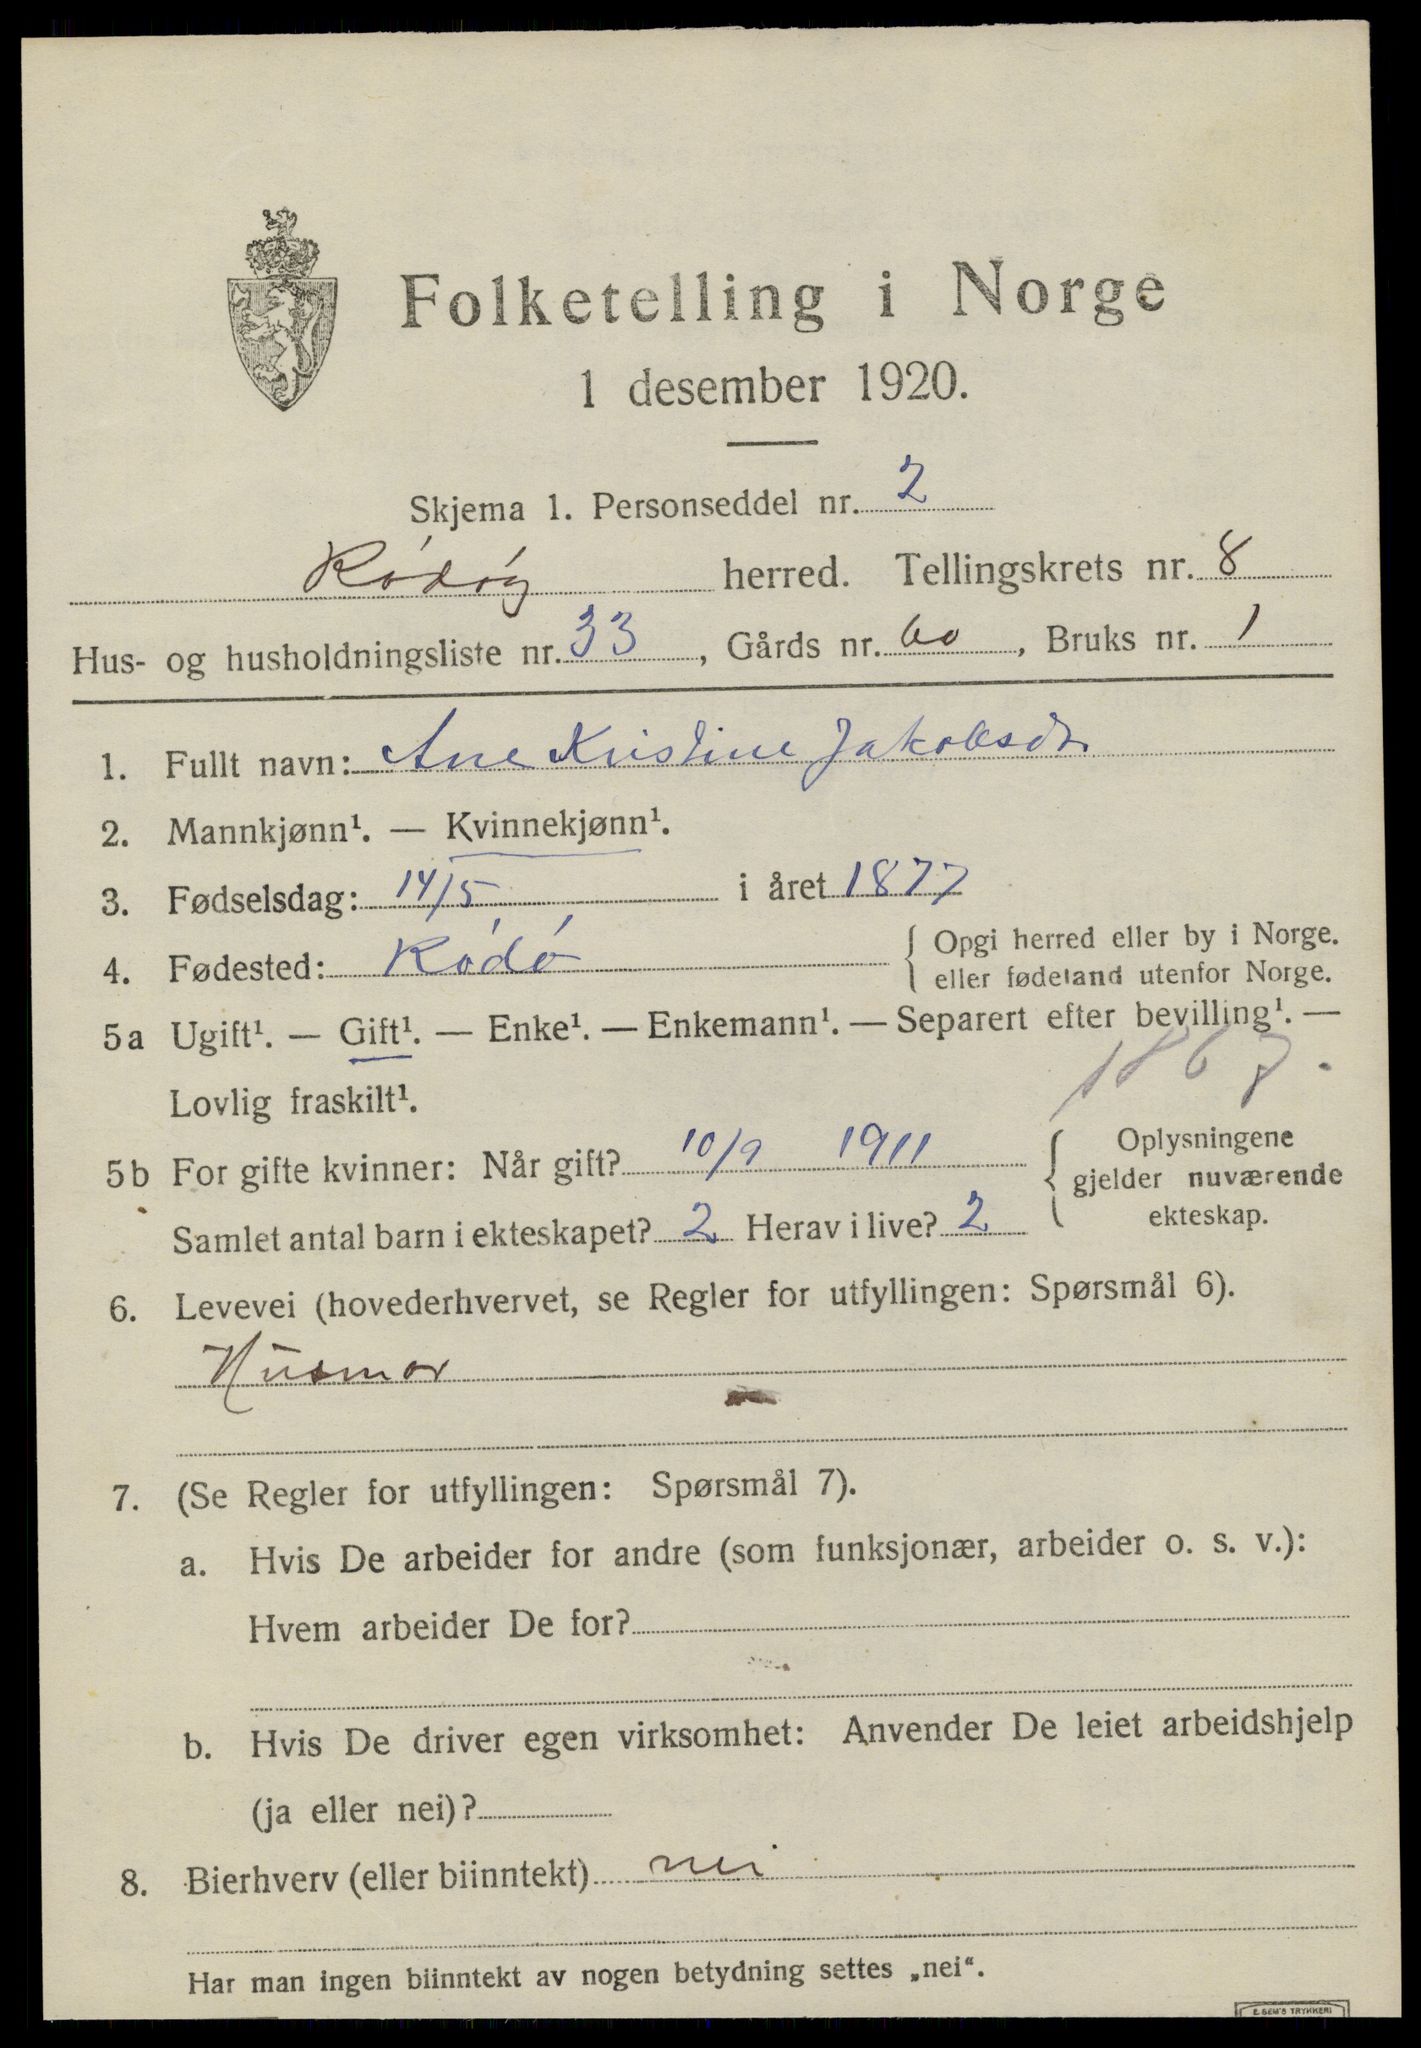 Folketelling i Norge
1 desember 1920.
Skjema 1. Personseddel nr. 2
Rödöy herred. Tellingskrets nr. 8
Hus- og husholdningsliste nr. 33, Gårds nr. 60, Bruks nr. 1
1. Fullt navn: Ane Kristine Jakobsdr
2. Mannkjønn¹. — Kvinnekjønn¹.
3. Fødselsdag: 14/5 i året 1877
4. Fødested: Rödö { Opgi herred eller by i Norge.
eller fødeland utenfor Norge.
5a Ugift¹. — Gift¹. — Enke¹. — Enkemann¹. — Separert efter bevilling¹. —
Lovlig fraskilt¹.
5b For gifte kvinner: Når gift? 10/9 1911
Samlet antal barn i ekteskapet? 2 Herav i live? 2
{ Oplysningene
gjelder nuværende
ekteskap.
6. Levevei (hovederhvervet, se Regler for utfyllingen: Spørsmål 6).
Husmor
7. (Se Regler for utfyllingen: Spørsmål 7).
a. Hvis De arbeider for andre (som funksjonær, arbeider o. s. v.):
Hvem arbeider De for?
b. Hvis De driver egen virksomhet: Anvender De leiet arbeidshjelp
(ja eller nei)?
8. Bierhverv (eller biinntekt) nei
Har man ingen biinntekt av nogen betydning settes „nei“.
E. SEM'S TRYKKERI